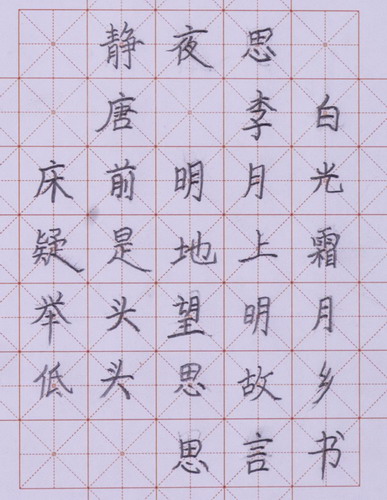 静夜思
唐 李白
床前明月光
疑是地上霜
举头望明月
低头思故乡
思言书